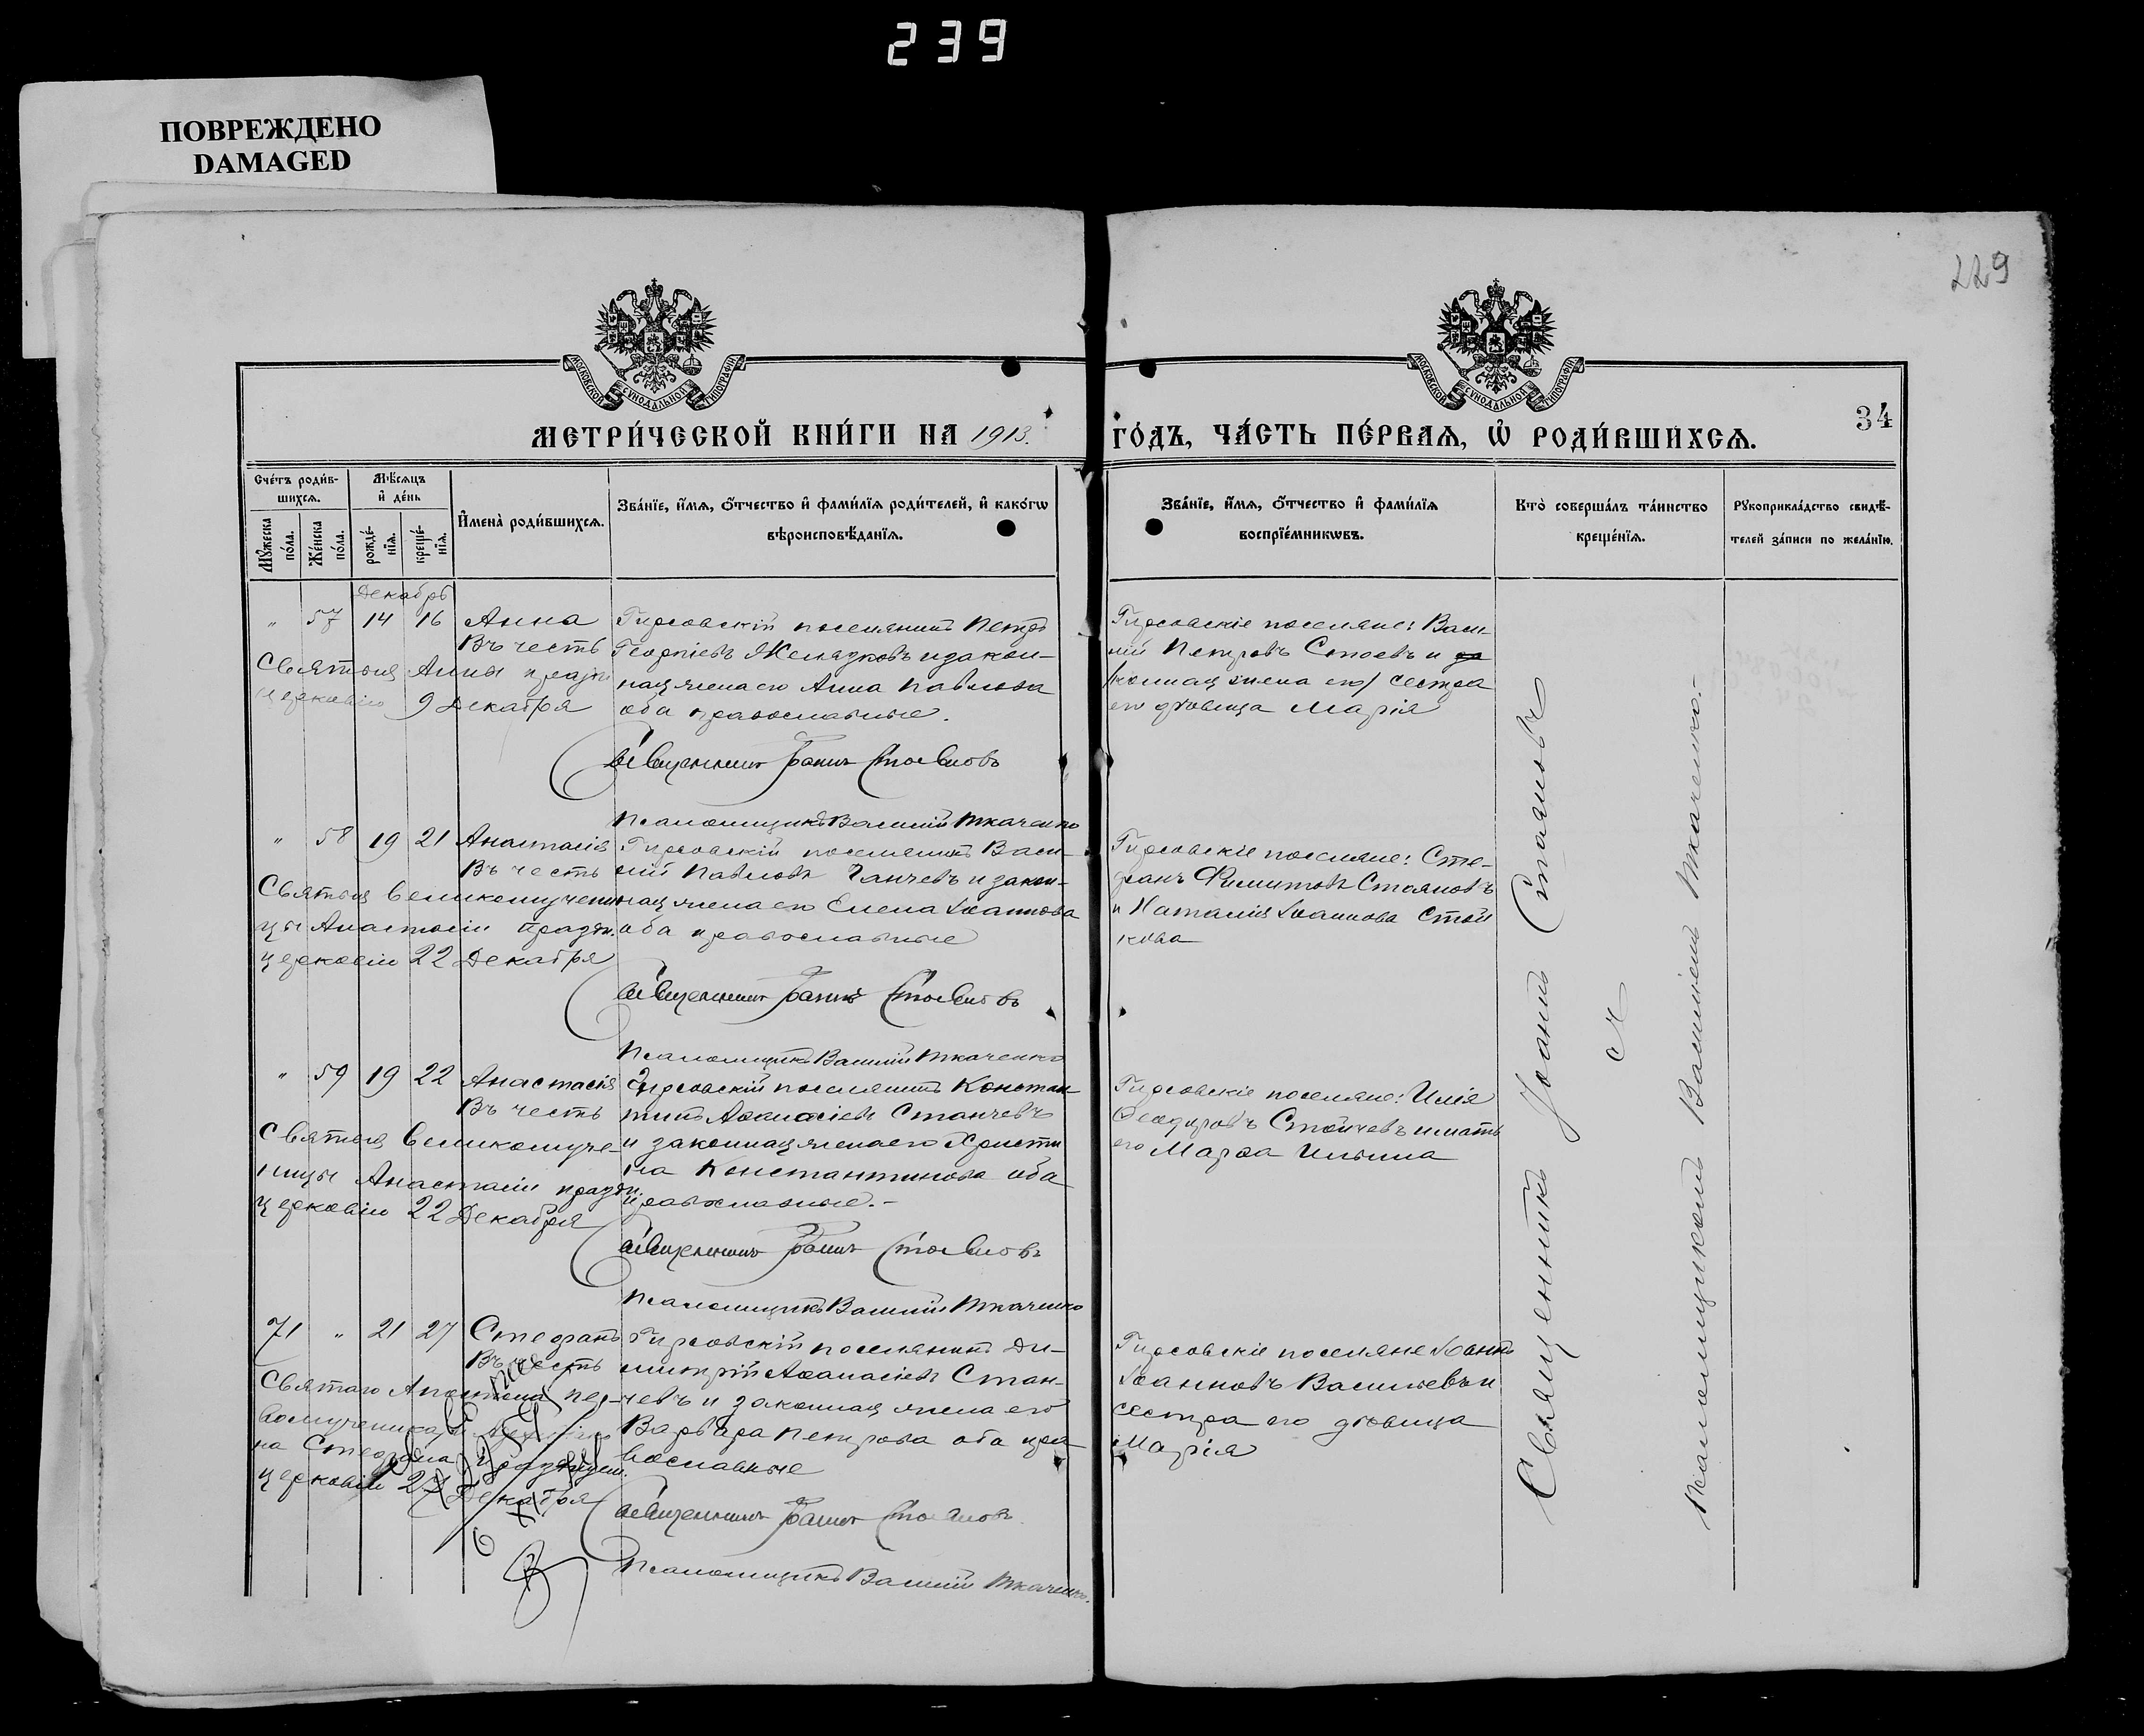 239
ПОВРЕЖДЕНО
DAMAGED
229
МОСКОВСКОЙ СѴНОДАЛЬНОЙ ТИПОГРАФІИ
МОСКОВСКОЙ СѴНОДАЛЬНОЙ ТИПОГРАФІИ
34
МЕТРИ́ЧЕСКОЙ КНИ́ГИ НА 1913. ГО́ДЪ, ЧА́СТЬ ПЕ́РВАѦ, Ѡ҆ РОДИ́ВШИХСѦ.
Сче́тъ роди́вшихсѧ.
Мꙋ́жеска по́ла.
Же́нска по́ла.
Мѣ́сѧцъ и҆ де́нь
рожде́нїѧ.
креще́нїѧ.
И҆мена̀ роди́вшихсѧ.
Зва́нїе, и҆́мѧ, ѻ҆́тчество и҆ фами́лїѧ роди́телей, и҆ како́гѡ
вѣроисповѣ́данїѧ.
Зва́нїе, и҆́мѧ, ѻ҆́тчество и҆ фами́лїѧ
воспрїе́мникѡвъ.
Кто̀ соверша́лъ та́инство
креще́нїѧ.
Рꙋкоприкла́дство свидѣ́-
телей за́писи по жела́нїю.
Декабрь
" 57 14 16 Анна
Въ честь
Святыя Анны праздн
церковію 9 Декабря
Гирсовскій поселянинъ Петръ
Георгіевъ Желязковъ и закон-
ная жена его Анна Павлова
оба православные.
Священникъ Іоаннъ Стояновъ
Псаломщикъ Василій Ткаченко
Гирсовскіе поселяне: Васи-
лій Петровъ Стоевъ и за
конная жена его/ сестра
его дѣвица Марія
" 58 19 21 Анастасія
Въ честь
Святыя великомучени
цы Анастасіи праздн.
церковію 22 Декабря
Гирсовскій поселянинъ Васи-
лій Павловъ Ганчевъ и закон-
ная жена его Елена Іоаннова
оба православные
Священникъ Іоаннъ Стояновъ
Псаломщикъ Василій Ткаченко
Гирсовскіе поселяне: Сте-
фанъ Филиповъ Стояновъ
и Наталія Іоаннова Стой
кова
" 59 19 22 Анастасія
Въ честь
Святыя великомуче-
ницы Анастасіи праздн.
церковію 22 Декабря
Гирсовскій поселянинъ Констан
тинъ Аѳанасіевъ Станчевъ
и законная жена его Христи
на Константинова оба
православные.-
Священникъ Іоаннъ Стояновъ
Псаломщикъ Василій Ткаченко
Гирсовскіе поселяне: Илія
Ѳеодоровъ Стойчевъ и мать
его Марѳа Ильина
71 " 21 27 Стефанъ
Въ честь
Святаго Апостола пер-
вомученика
на Стефана
церковію 27 Декабря
Гирсовскій поселянинъ Ди-
митрій Аѳанасіевъ Стан-
чевъ и законная жена его
Варвара Петрова оба пра
вославные
Священникъ Іоаннъ Стояновъ
Псаломщикъ Василій Ткаченко.
Гирсовскіе поселяне Іоаннъ
Іоанновъ Васильевъ и
сестра его дѣвица
Марія
Священникъ Іоаннъ Стояновъ
съ
Псаломщикомъ Василіемъ Ткаченко.-